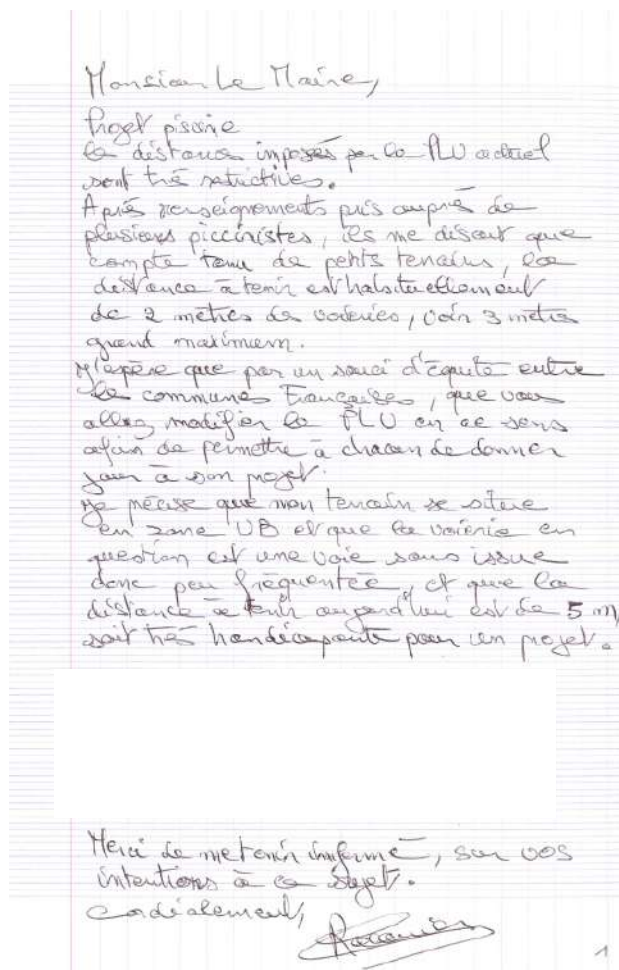 Monsieur Le Maire,
Projet piscine
les distances imposés par le PLU actuel
sont très restrictives.
Après renseignements pris auprès de
plusieurs piccinistes, ils me disent que
compte tenu de petits terrains, la
distance à tenir est habituellement
de 2 mètres des voieries, voir 3 mètres
grand maximum.
J'espère que par un souci d'équité entre
les communes Françaises, que vous
allez modifier le PLU en ce sens
afin de permettre à chacun de donner
jour à son projet.
Je précise que mon terrain se situe
en zone UB et que la voierie en
question est une voie sans issue
donc peu fréquentée, et que la
distance à tenir aujourd'hui est de 5 m,
soit très handicapante pour un projet.
Merci de me tenir informé, sur vos
intentions à ce sujet.
Cordialement,
1